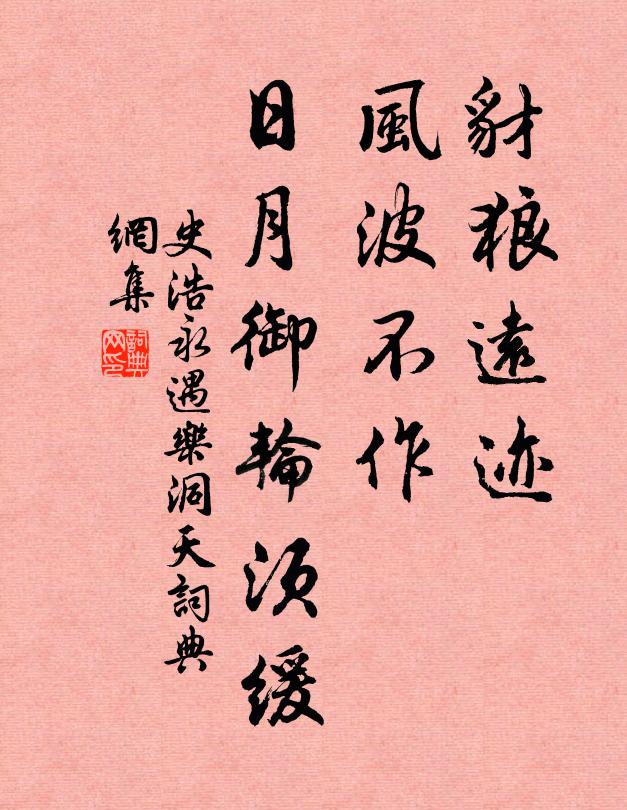 豺狼遠迹
風波不作
日月御輪須緩
史浩永遇樂洞天詞典
網集
詞典
网印